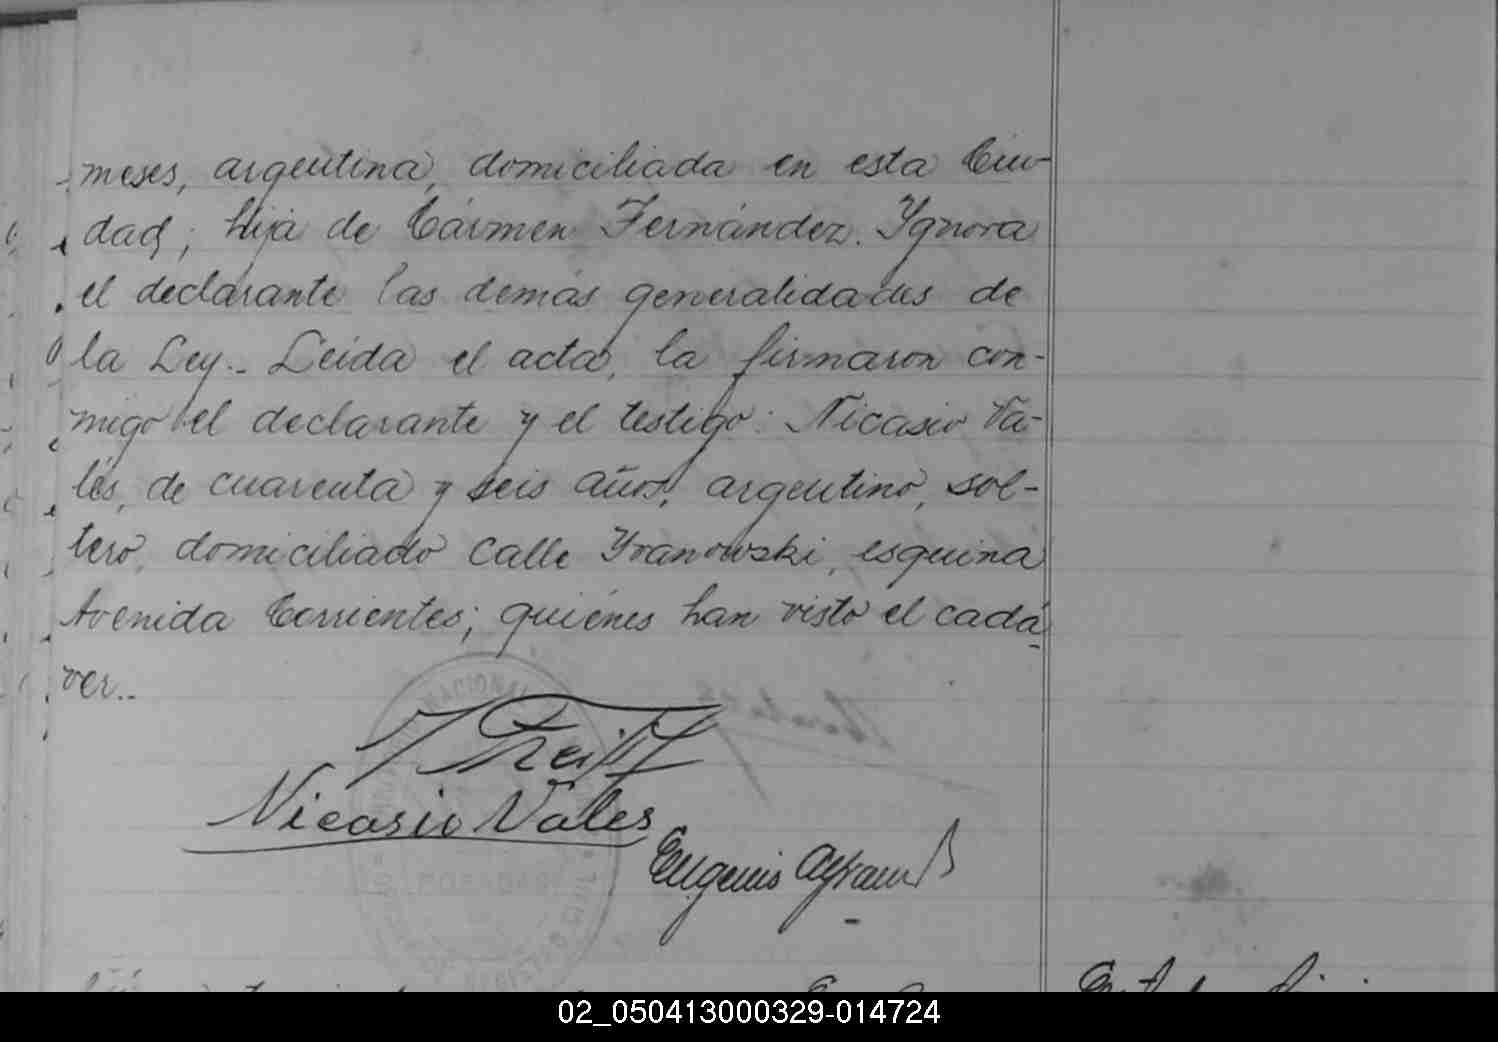 meses, argentina, domiciliada en esta Ciu-
dad; hija de Cármen Fernández. Ygnora
el declarante las demás generalidades de
la Ley.- Leida el acta, la firmaron con-
migo el declarante y el testigo: Nicasio Va-
lés, de cuarenta y seis años, argentino, sol-
tero, domiciliado Calle Yvanowski, esquina
Avenida Corrientes; quiénes han visto el cadá
ver..
NACIONAL
Nicasio Vales
Eugenio
POSADAS
02_050413000329-014724